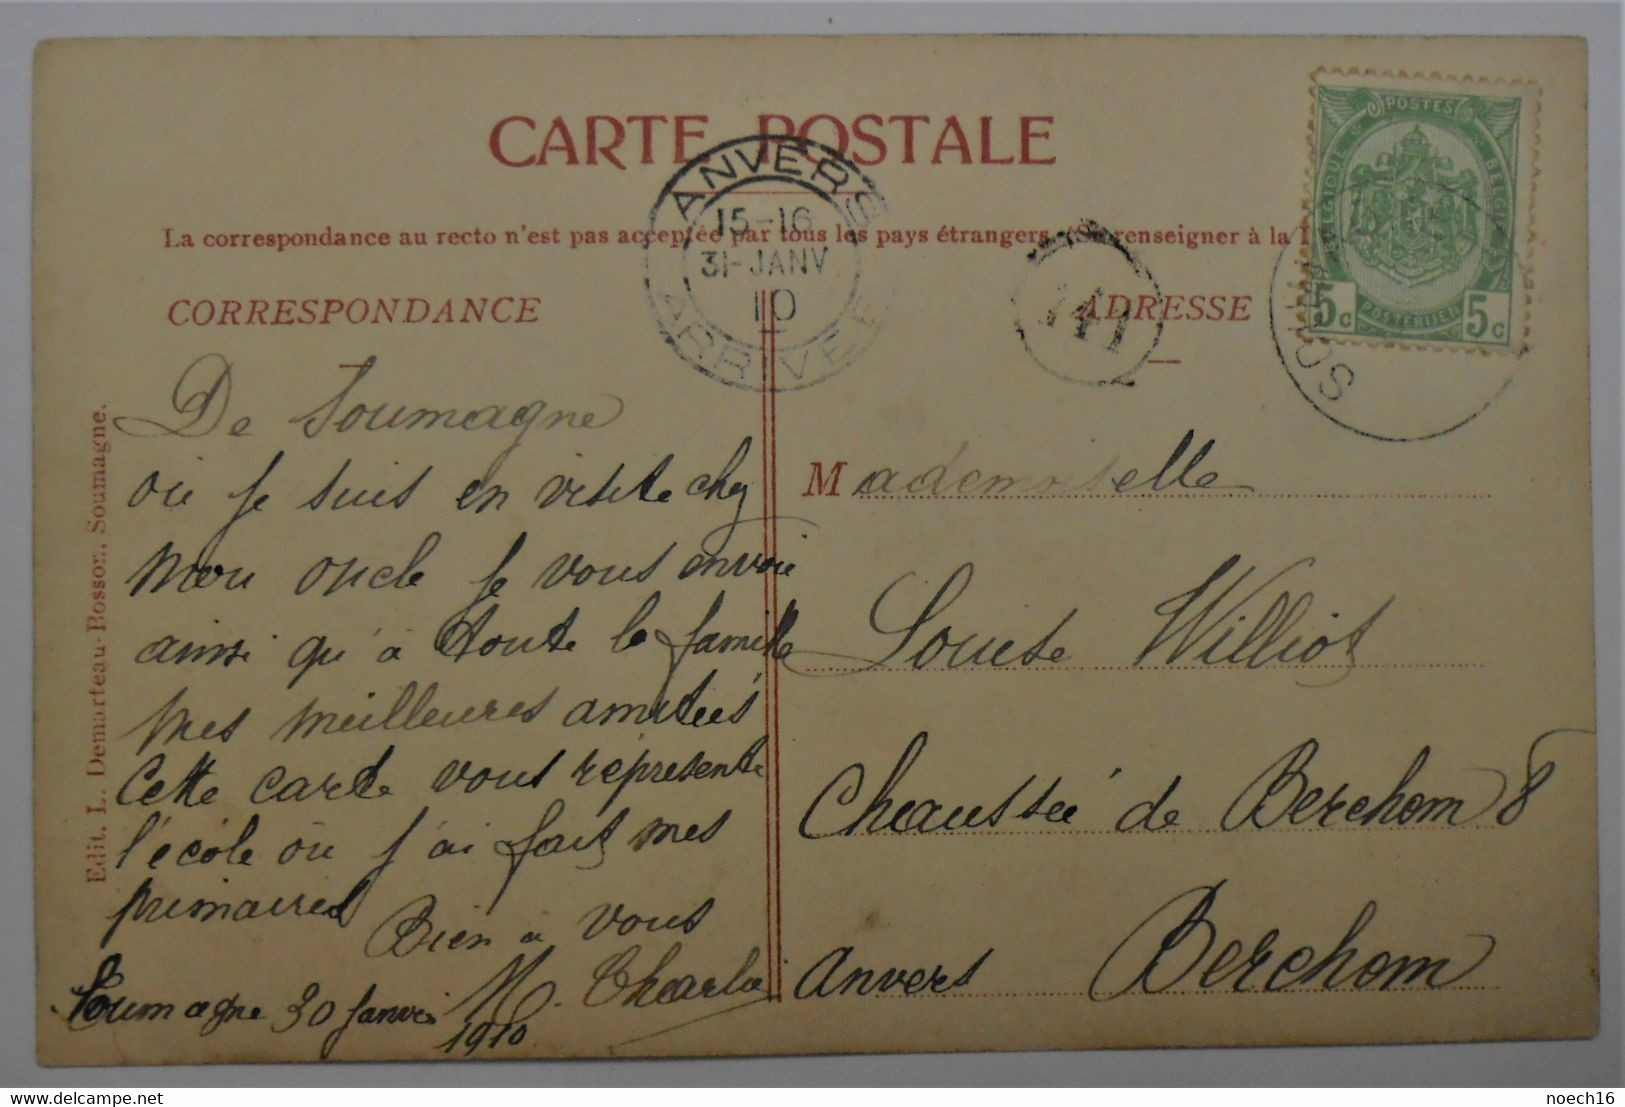 CARTE POSTALE
La correspondance au recto n'est pas acceptée par tous les pays étrangers. (Se renseigner à la
CORRESPONDANCE
ADRESSE
ANVERS
15-16
31-JANV
10
ARRIVEE
141
POSTES
BELGIQUE
BELGIE
5c POSTERIJEN 5c
SOUM
Edit. L. Demarteau-Bosson, Soumagne.
De Soumagne
où je suis en visite chez
mon oncle je vous envoie
ainsi qu'à toute la famille
mes meilleures amitiés
Cette carte vous représente
l'école où j'ai fait mes
primaires
Bien à vous
M. Charlie
Soumagne 30 Janvier
1910
Mademoiselle
Louise Williot
Chaussée de Berchem 8
Anvers Berchem
noech16